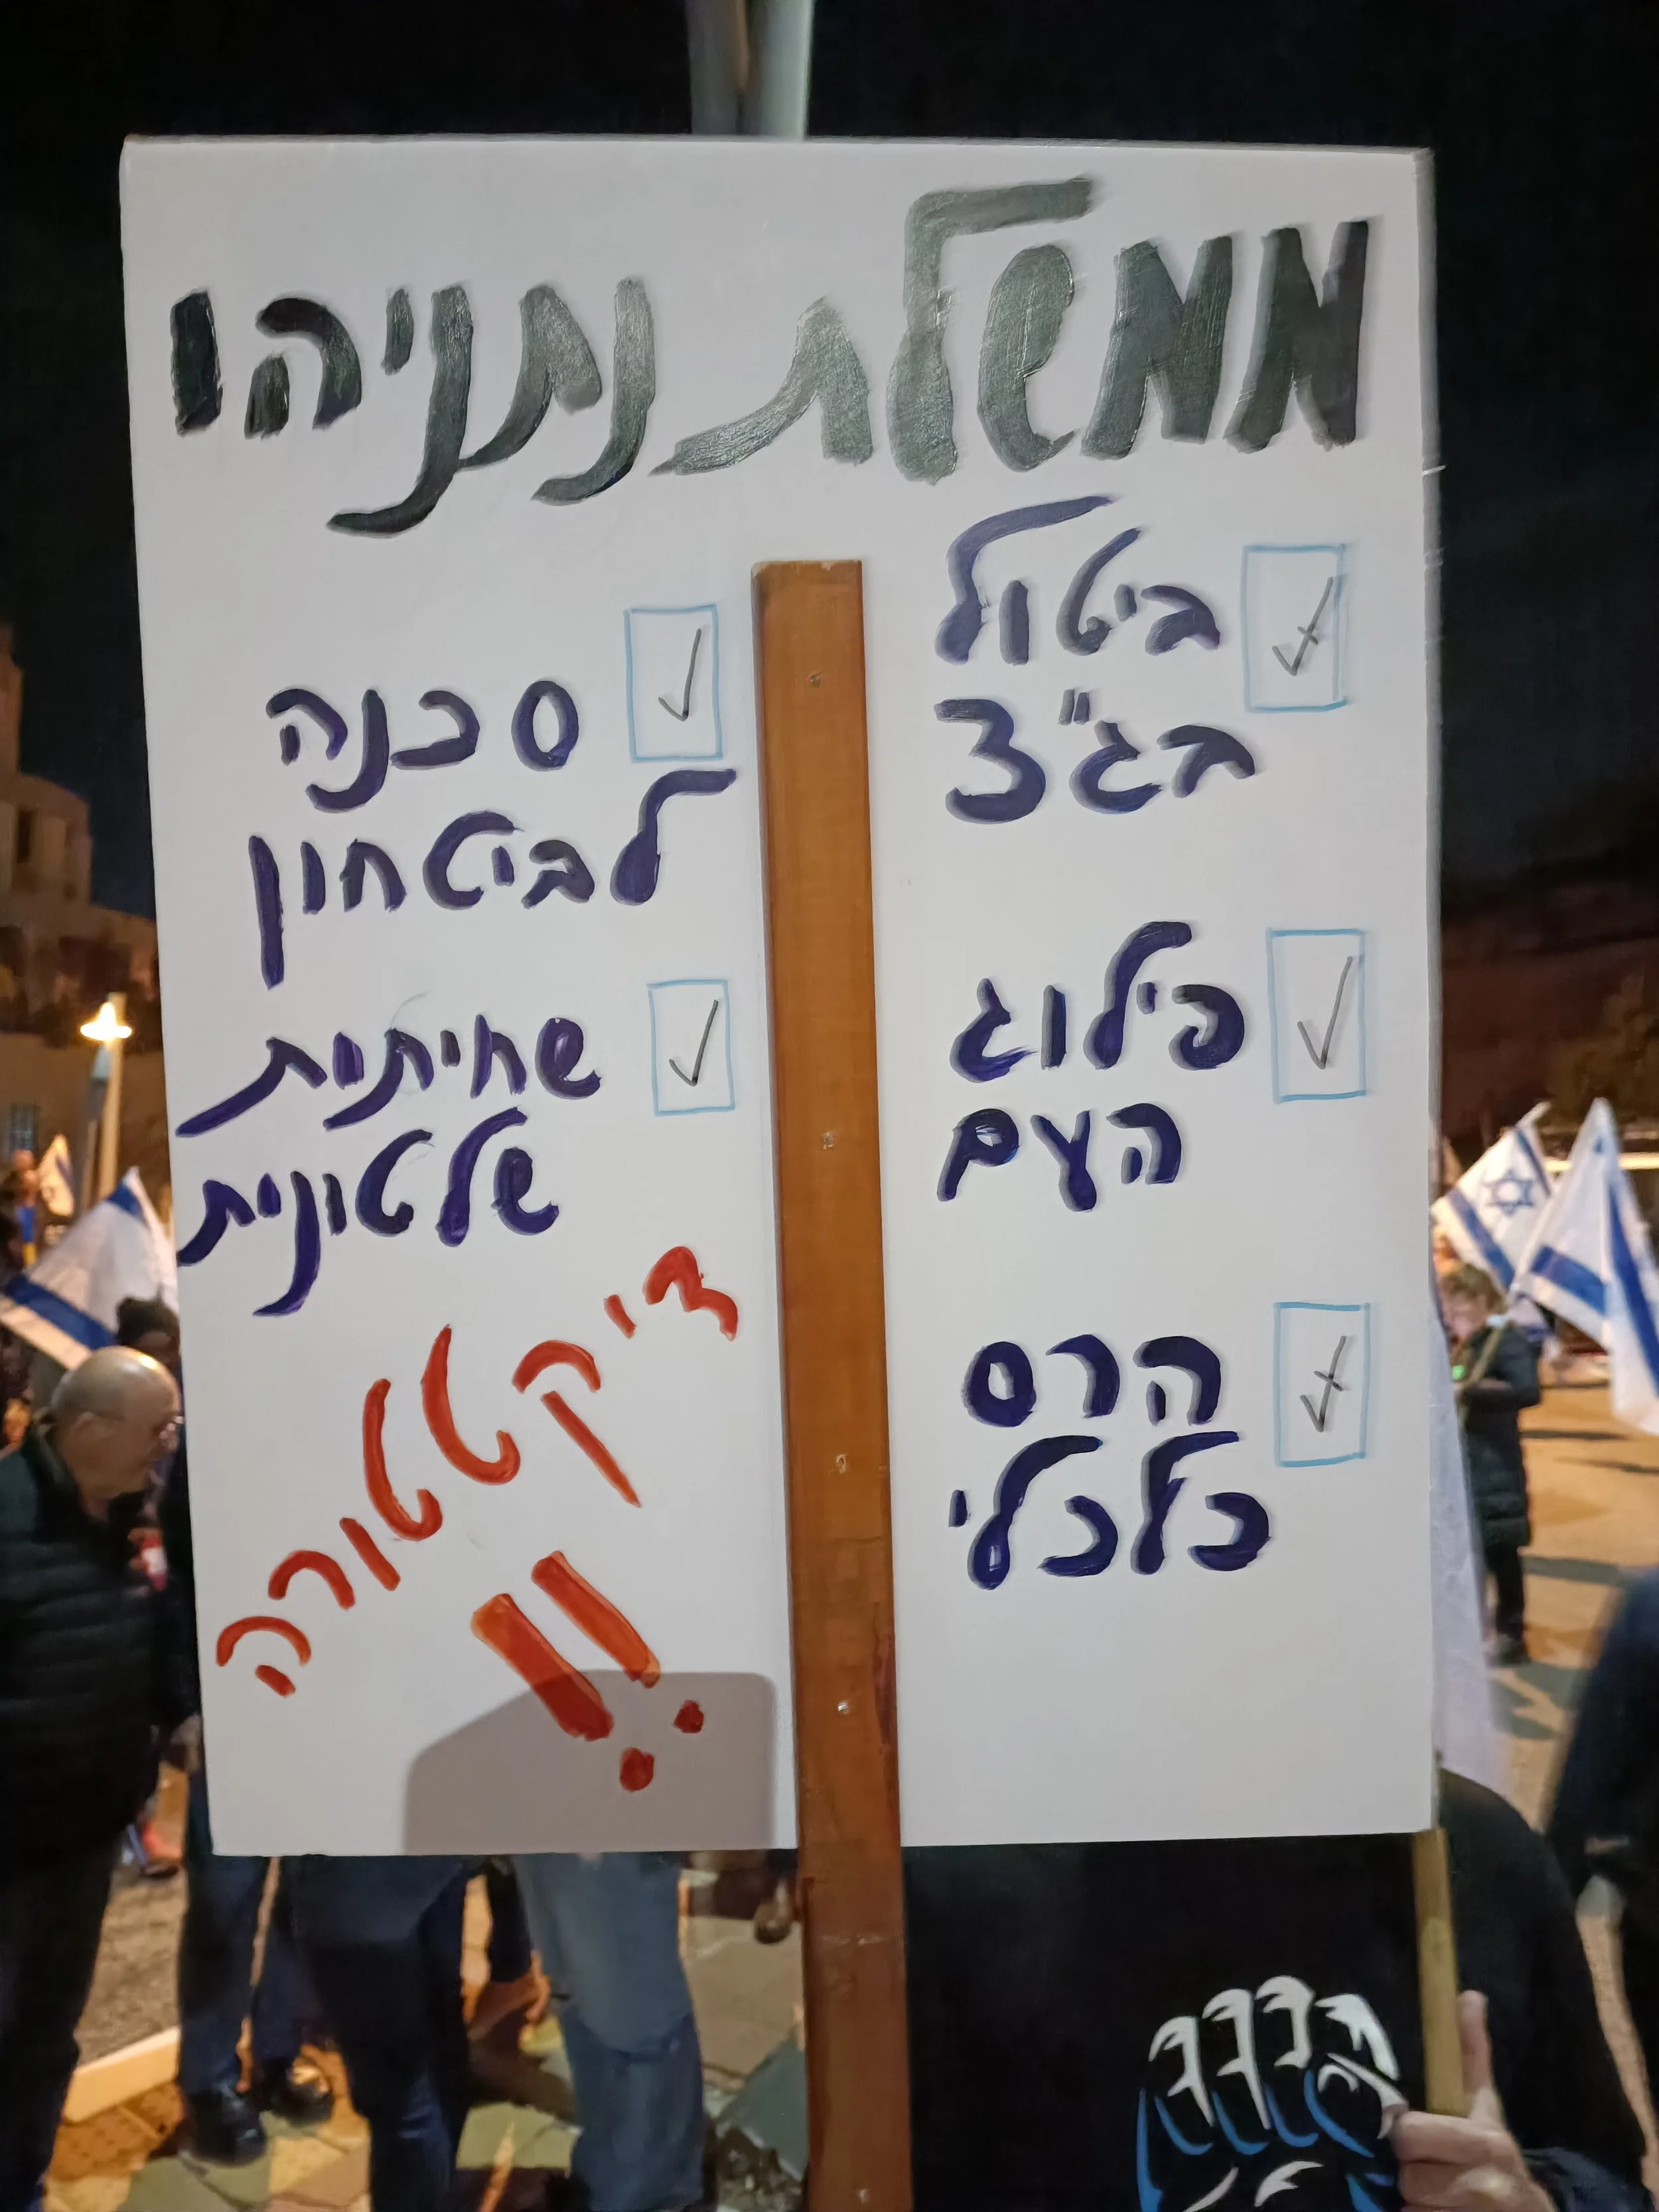 ממשלת נתניהו
ביטול
בג"צ
פילוג
העם
הרס
כלכלי
סכנה
לביטחון
שחיתות
שלטונית
דיקטטורה
!!